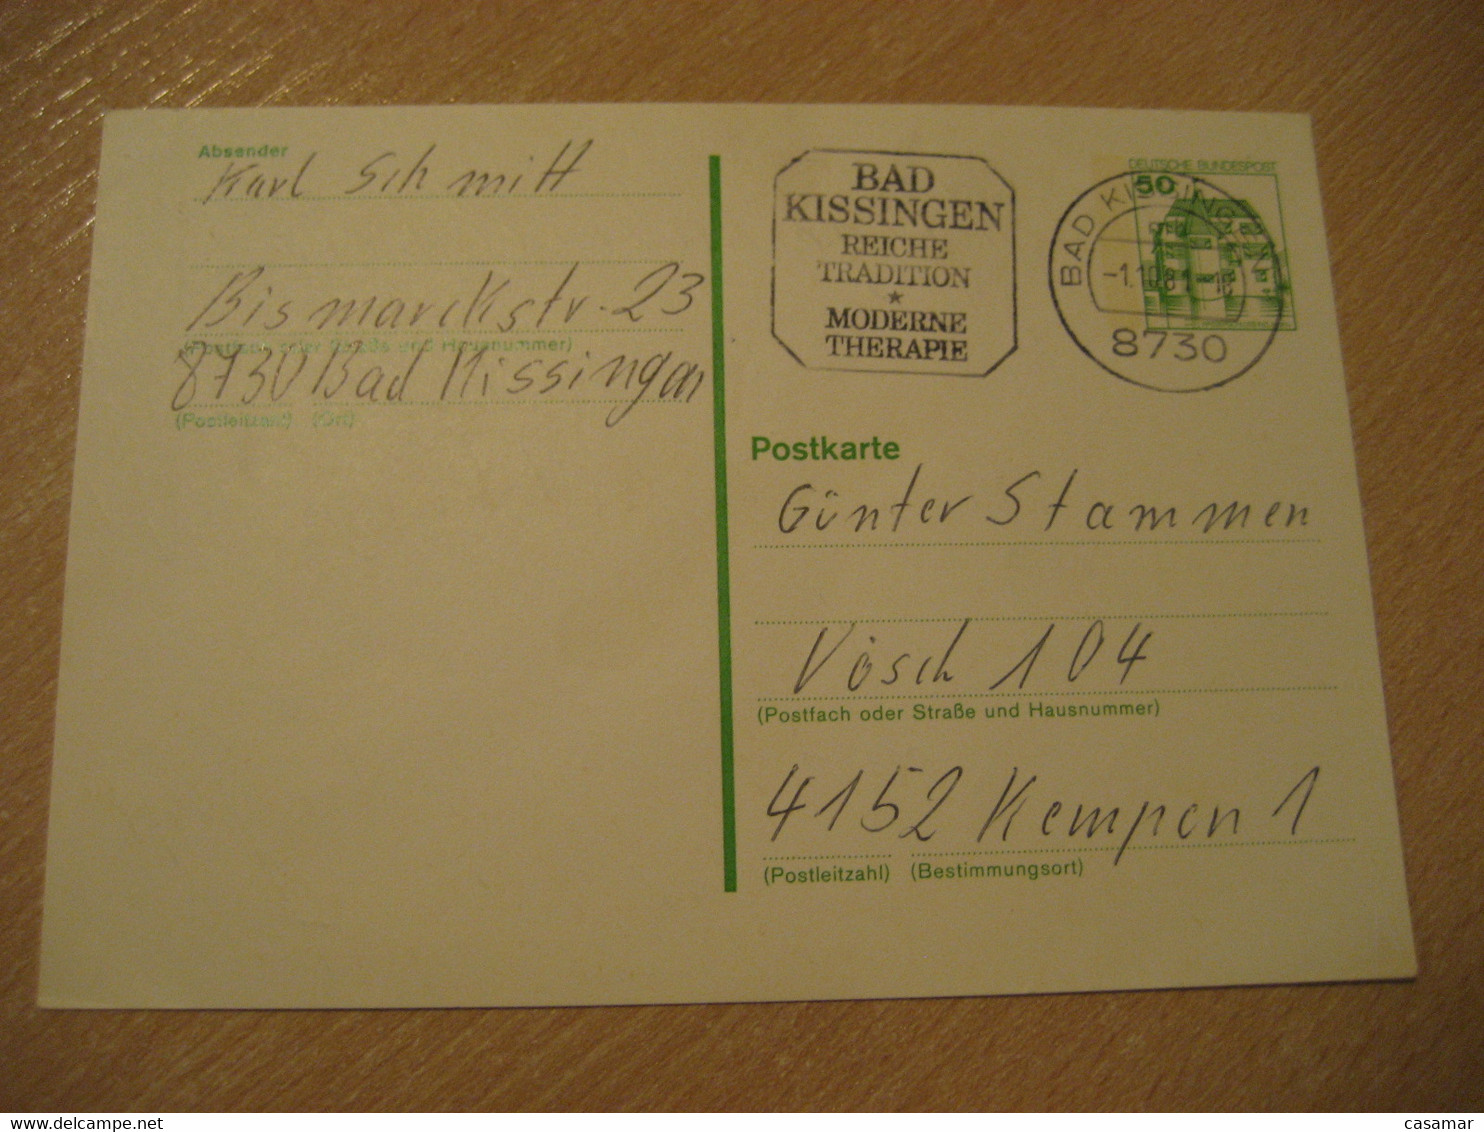 Absender
Karl Schmitt
Bismarckstr. 23
(Postfach oder Straße und Hausnummer)
8730 Bad Kissingen
(Postleitzahl) (Ort)
BAD
KISSINGEN
REICHE
TRADITION
★
MODERNE
THERAPIE
BAD KISSINGEN
-1.10.81-
8730
DEUTSCHE BUNDESPOST
50
Postkarte
Günter Stammen
Vösch 104
(Postfach oder Straße und Hausnummer)
4152 Kempen 1
(Postleitzahl) (Bestimmungsort)
casamar